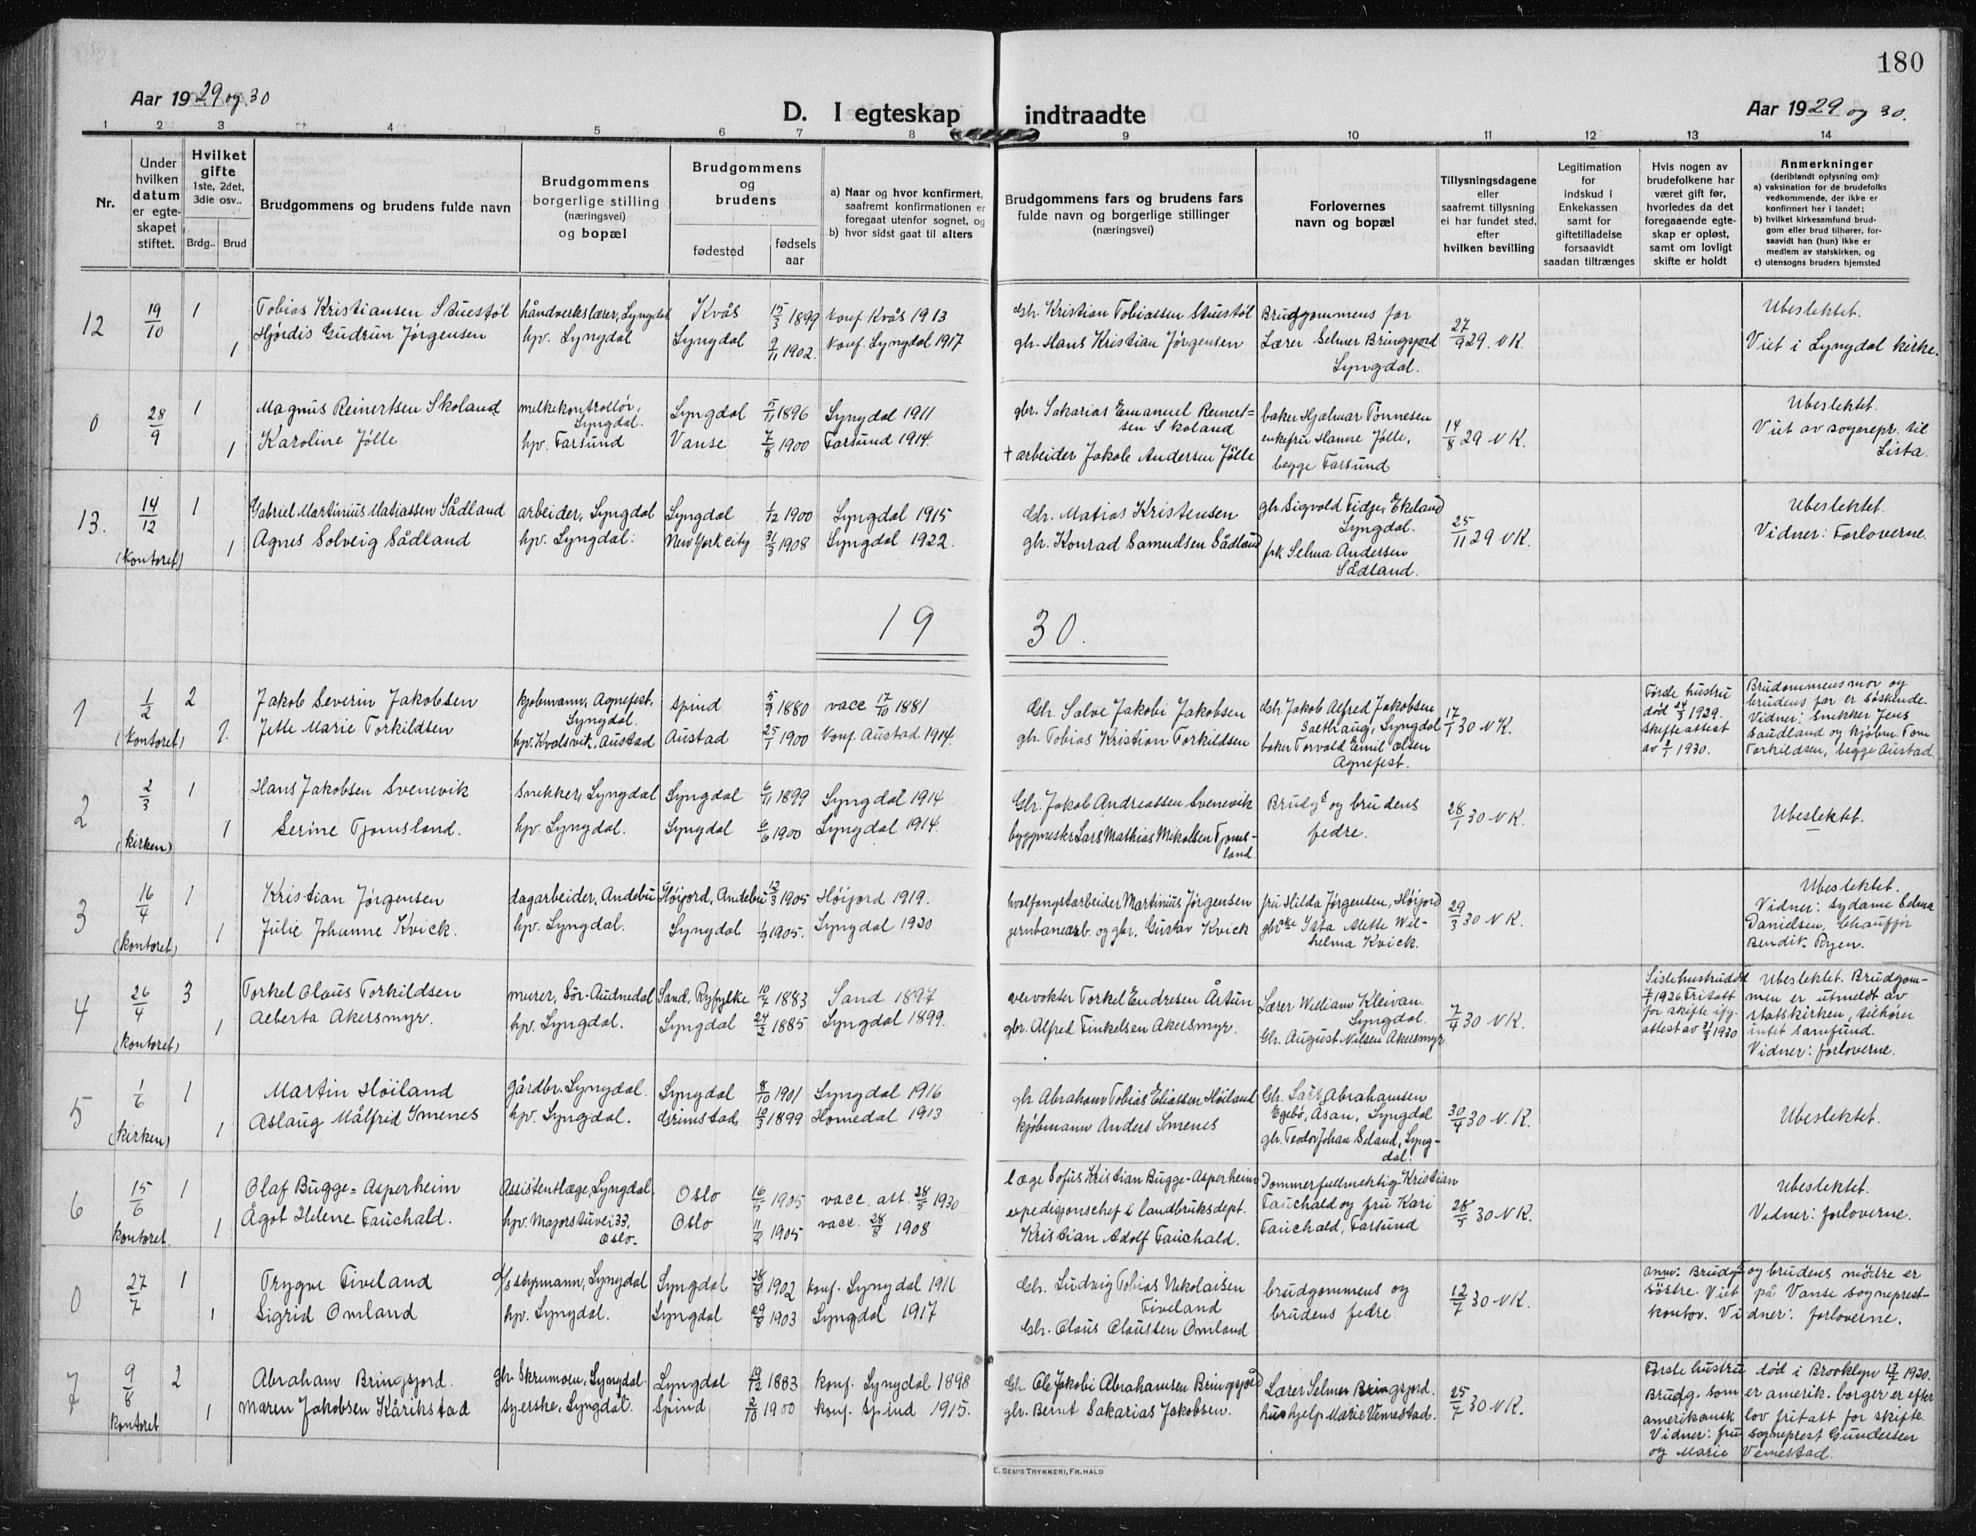 180
Aar 1929 og 30
D. I egteskap indtraadte
Aar 1929 og 30.
1 2 3 4 5 6 7 8 9 10 11 12 13 14
Nr.
Under hvilken datum er egteskapet stiftet.
Hvilket gifte 1ste, 2det, 3die osv..
Brdg.. Brud
Brudgommens og brudens fulde navn
Brudgommens borgerlige stilling (næringsvei) og bopæl
Brudgommens og brudens
fødested
fødsels aar
a) Naar og hvor konfirmert, saafremt konfirmationen er foregaat utenfor sognet, og
b) hvor sidst gaat til alters
Brudgommens fars og brudens fars fulde navn og borgerlige stillinger (næringsvei)
Forlovernes navn og bopæl
Tillysningsdagene eller saafremt tillysning ei har fundet sted, efter hvilken bevilling
Legitimation for indskud i Enkekassen samt for giftetilladelse forsaavidt saadan tiltrænges
Hvis nogen av brudefolkene har været gift før, hvorledes da det foregaaende egteskap er opløst, samt om lovligt skifte er holdt
Anmerkninger (deriblandt oplysning om):
a) vaksination for de brudefolks vedkommende, der ikke er konfirmert her i landet;
b) hvilket kirkesamfund brudgom eller brud tilhører, forsaavidt han (hun) ikke er medlem av statskirken, og
c) utensogns bruders hjemsted
12 19/10 1 Tobias Kristiansen Stuestøl håndverkslærer, Lyngdal Kvås 15/3 1899 konf. Kvås 1913 Gbr. Kristian Tobiassen Stuestøl Brudgommens far 27/9 29. N K. Ubeslektet.
1 Hjørdis Gudrun Jørgensen hpv. Lyngdal Lyngdal 9/11 1902. konf. Lyngdal 1917 gbr. Hans Kristian Jørgensen Lærer Selmer Bringsjord Lyngdal. Viet i Lyngdal kirke.
0 28/9 1 Magnus Reinertsen Skoland melkekontrollør, Lyngdal. Lyngdal 5/11 1896 Lyngdal 1911 gbr. Sakarias Emanuel Reinertsen Skoland baker Hjalmar Tønnesen 14/8 29 N K. Ubeslektet.
1 Karoline Jølle hpv. Farsund Vanse 7/8 1900 Farsund 1914. † arbeider Jakob Andersen Jølle enkefru Hanne Jølle, begge Farsund Viet av sognepr. til Lista.
13. 14/12 1 Gabriel Martinius Matiassen Sådland arbeider, Lyngdal Lyngdal 1/12 1900 Lyngdal 1915 Gbr. Matias Kristensen gbr Sigvold Fidje, Ekeland Lyngdal. 25/11 29 N K. Ubeslektet.
(kontoret) 1 Agnes Solveig Sådland hpv. Lyngdal. New York city 31/3 1908 Lyngdal 1922. gbr. Konrad Samuelsen Sådland frk Selma Andersen Sådland. Vidner: Forloverne.
19 30.
1 1/2 2 Jakob Severin Jakobsen kjøbmann, Agnefest, Lyngdal. Spind 5/9 1880 vacc 17/10 1881 Gbr. Salve Jakobi Jakobsen Gbr. Jakob Alfred Jakobsen Sæthraug, Lyngdal 17/1 30 N K. Første hustru død 24/3 1929. Skifteattest av 2/1 1930. Brudommens mor og brudens far er søskende.
(kontoret) 1. Jette Marie Torkildsen hpv. Kvalsvik, Austad Austad 25/1 1900 Konf. Austad 1914. gbr. Tobias Kristian Torkildsen baker Torvald Emil Olsen Agnefest. Vidner: snekker Jens Saudland og kjøbm. Tom Torkildsen, begge Austad
2 2/3 1 Hans Jakobsen Svenevik snekker, Lyngdal Lyngdal 6/11 1899 Lyngdal 1914 Gbr. Jakob Andreassen Svenevik Brudg's og brudens fedre. 28/1 30 N K. Ubeslektet.
(kirken) 1 Serine Tjomsland. hpv. Lyngdal. Lyngdal 6/6 1900 Lyngdal 1914. byggmester Lars Mathias Mikalsen Tjomsland.
3 16/4 1 Kristian Jørgensen dagarbeider, Andebu Höijord, Andebu 12/3 1905 Höijord 1919. hvalfangstarbeider Martinius Jørgensen fru Hilda Jørgensen, Höijord 29/3 30 N K. Ubeslektet.
(kontoret) 1 Julie Johanne Kvick. hpv. Lyngdal. Lyngdal 1/9 1905. Lyngdal 1920 jernbanearb. og gbr. Gustav Kvick Alette Wilhelma Kvick. Vidner: sydame Selma Danielsen, Chauffør Bendik Ryen.
4 26/4 3 Torkel Olaus Torkildsen murer, Sør-Audnedal Sand, Ryfylke 10/7 1883 Sand 1897 Torkel Endresen Årtun Lærer William Kleivan Lyngdal. 7/4 30 N K. Siste hustru død 1926 Fritatt for skifte ifg. attest av 1930 Ubeslektet. Brudgommen er utmeldt av statskirken, tilhører intet samfund.
(kontoret) 1 Alberta Akersmyr. hpv. Lyngdal. Lyngdal 24/2 1885 Lyngdal 1899. gbr. Alfred Finkelsen Akersmyr. Gbr. August Nilsen Akersmyr Vidner: forloverne.
5 1/6 1 Martin Höiland gårdbr. Lyngdal. Lyngdal 8/10 1901 Lyngdal 1916 gbr Abraham Tobias Eliassen Höiland Gbr. Lars Abrahamsen Egebø, Åsan, Lyngdal 30/4 30 N. K. Ubeslektet.
(kirken) 1 Aslaug Målfrid Imenes hpv. Lyngdal. Grimstad 10/3 1899 Homedal 1913 kjøbmann Anders Imenes gbr. Teodor Johan Eland, Lyngdal.
6 15/6 1 Olaf Bugge-Asperheim Assistentlæge, Lyngdal. Oslo 1905 vacc. att. 28/5 1930 læge Sofus Kristian Bugge-Asperheim Dommerfullmektig Kristian Fauchald og fru Kari Fauchald, Farsund 28/5 30 N K. Ubeslektet.
kontoret. 1 Ågot Helene Fauchald. hpv. Majorstuvei 33, Oslo. Oslo 1905 vacc. 1908 expedisjonschef i landbruksdept. Kristian Adolf Fauchald. Vidner: forloverne.
0 27/7 1 Trygve Fiveland styrmann, Lyngdal Lyngdal 1902 konf. Lyngdal 1916 Gbr. Ludvig Tobias Nikolaisen Fiveland brudgommens og brudens fedre. 12/7 30 N K. anm: Brudg's og brudens mødre er søstre. Viet på Vanse sogneprestkontor. Vidner: forloverne.
1 Sigrid Omland hpv. Lyngdal. Lyngdal 29/8 1903 Lyngdal 1917 Gbr. Olaus Olaussen Omland
7 9/8 2 Abraham Bringsjord. gbr. Skrumoen, Lyngdal. Lyngdal 19/12 1883 konf. Lyngdal 1898 Gbr. Ole Jakobi Abrahamsen Bringsjord Lærer Selmer Bringsjord. 25/7 30 N K. Første hustru død i Brooklyn 1920. Brudg. som er amerik. borger er efter amerikansk lov fritatt for skifte.
kontoret 1 Maren Jakobsen Kårikstad syerske, Lyngdal. Spind 2/10 1900 konf. Spind 1915. gbr. Bernt Sakarias Jakobsen. hushjelp Marie Vemestad. Vidner: fru sogneprest Gundersen og Marie Vemestad.
E. SEM'S TRYKKERI, FR.HALD